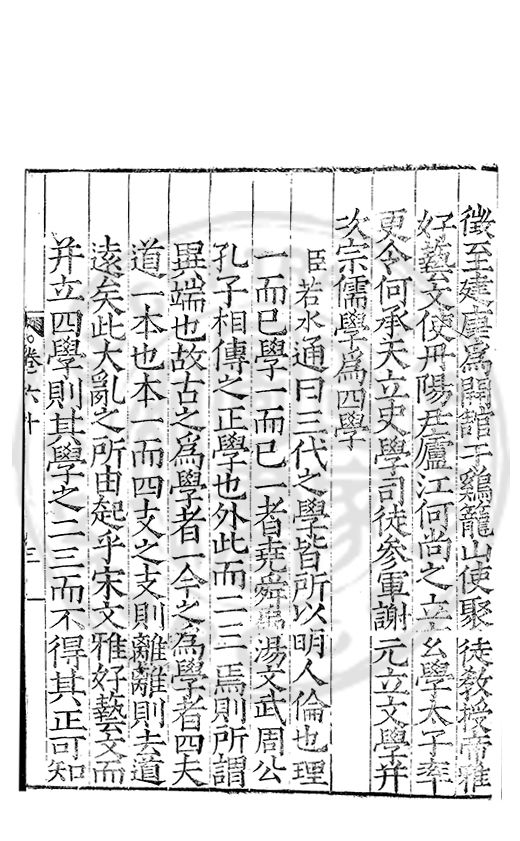 徵至建康爲開館于鷄籠山使聚徒敎授帝雅
好藝文使丹陽尹廬江何尚之立玄學太子率
更令何承天立史學司徒參軍謝元立文學并
次宗儒學爲四學
臣若水通曰三代之學皆所以明人倫也理
一而已學一而已一者堯舜禹湯文武周公
孔子相傳之正學也外此而二三焉則所謂
異端也故古之爲學者一今之爲學者四夫
道一本也本一而四支之支則離離則去道
遠矣此大亂之所由起乎宋文雅好藝文而
并立四學則其學之二三而不得其正可知
卷六十
三